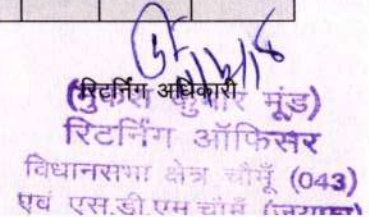 रिटर्निंग अधिकारी
(मुकेश कुमार मूंड)
रिटर्निंग ऑफिसर
विधानसभा क्षेत्र चौमूँ (043)
एवं एस.डी.एम चौमूँ (जयपुर)